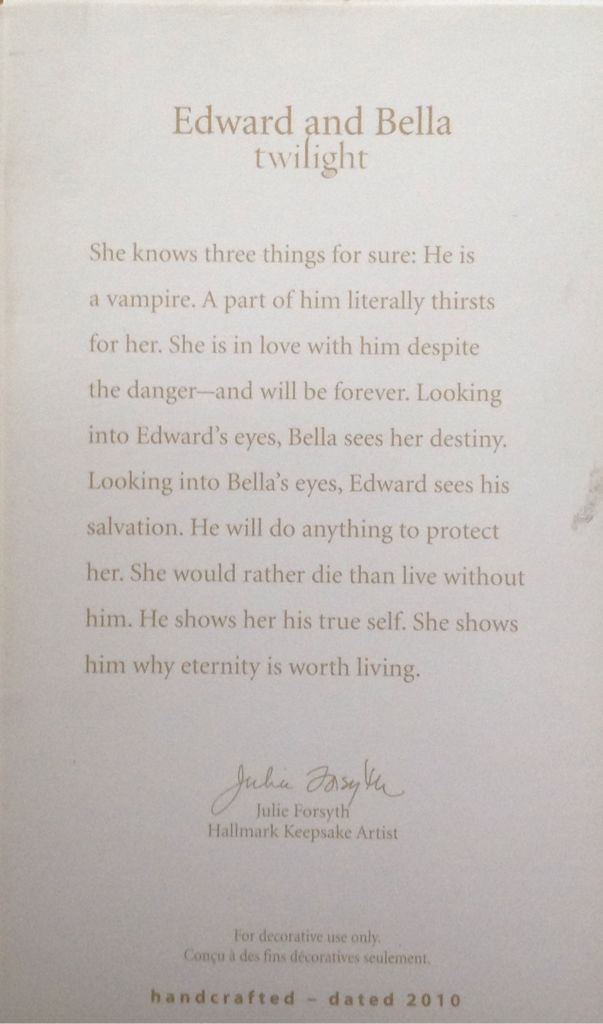 Edward and Bella
twilight
She knows three things for sure: He is
a vampire. A part of him literally thirsts
for her. She is in love with him despite
the danger—and will be forever. Looking
into Edward's eyes, Bella sees her destiny.
Looking into Bella's eyes, Edward sees his
salvation. He will do anything to protect
her. She would rather die than live without
him. He shows her his true self. She shows
him why eternity is worth living.
Julie Forsyth
Julie Forsyth
Hallmark Keepsake Artist
For decorative use only.
Conçu à des fins décoratives seulement.
handcrafted – dated 2010